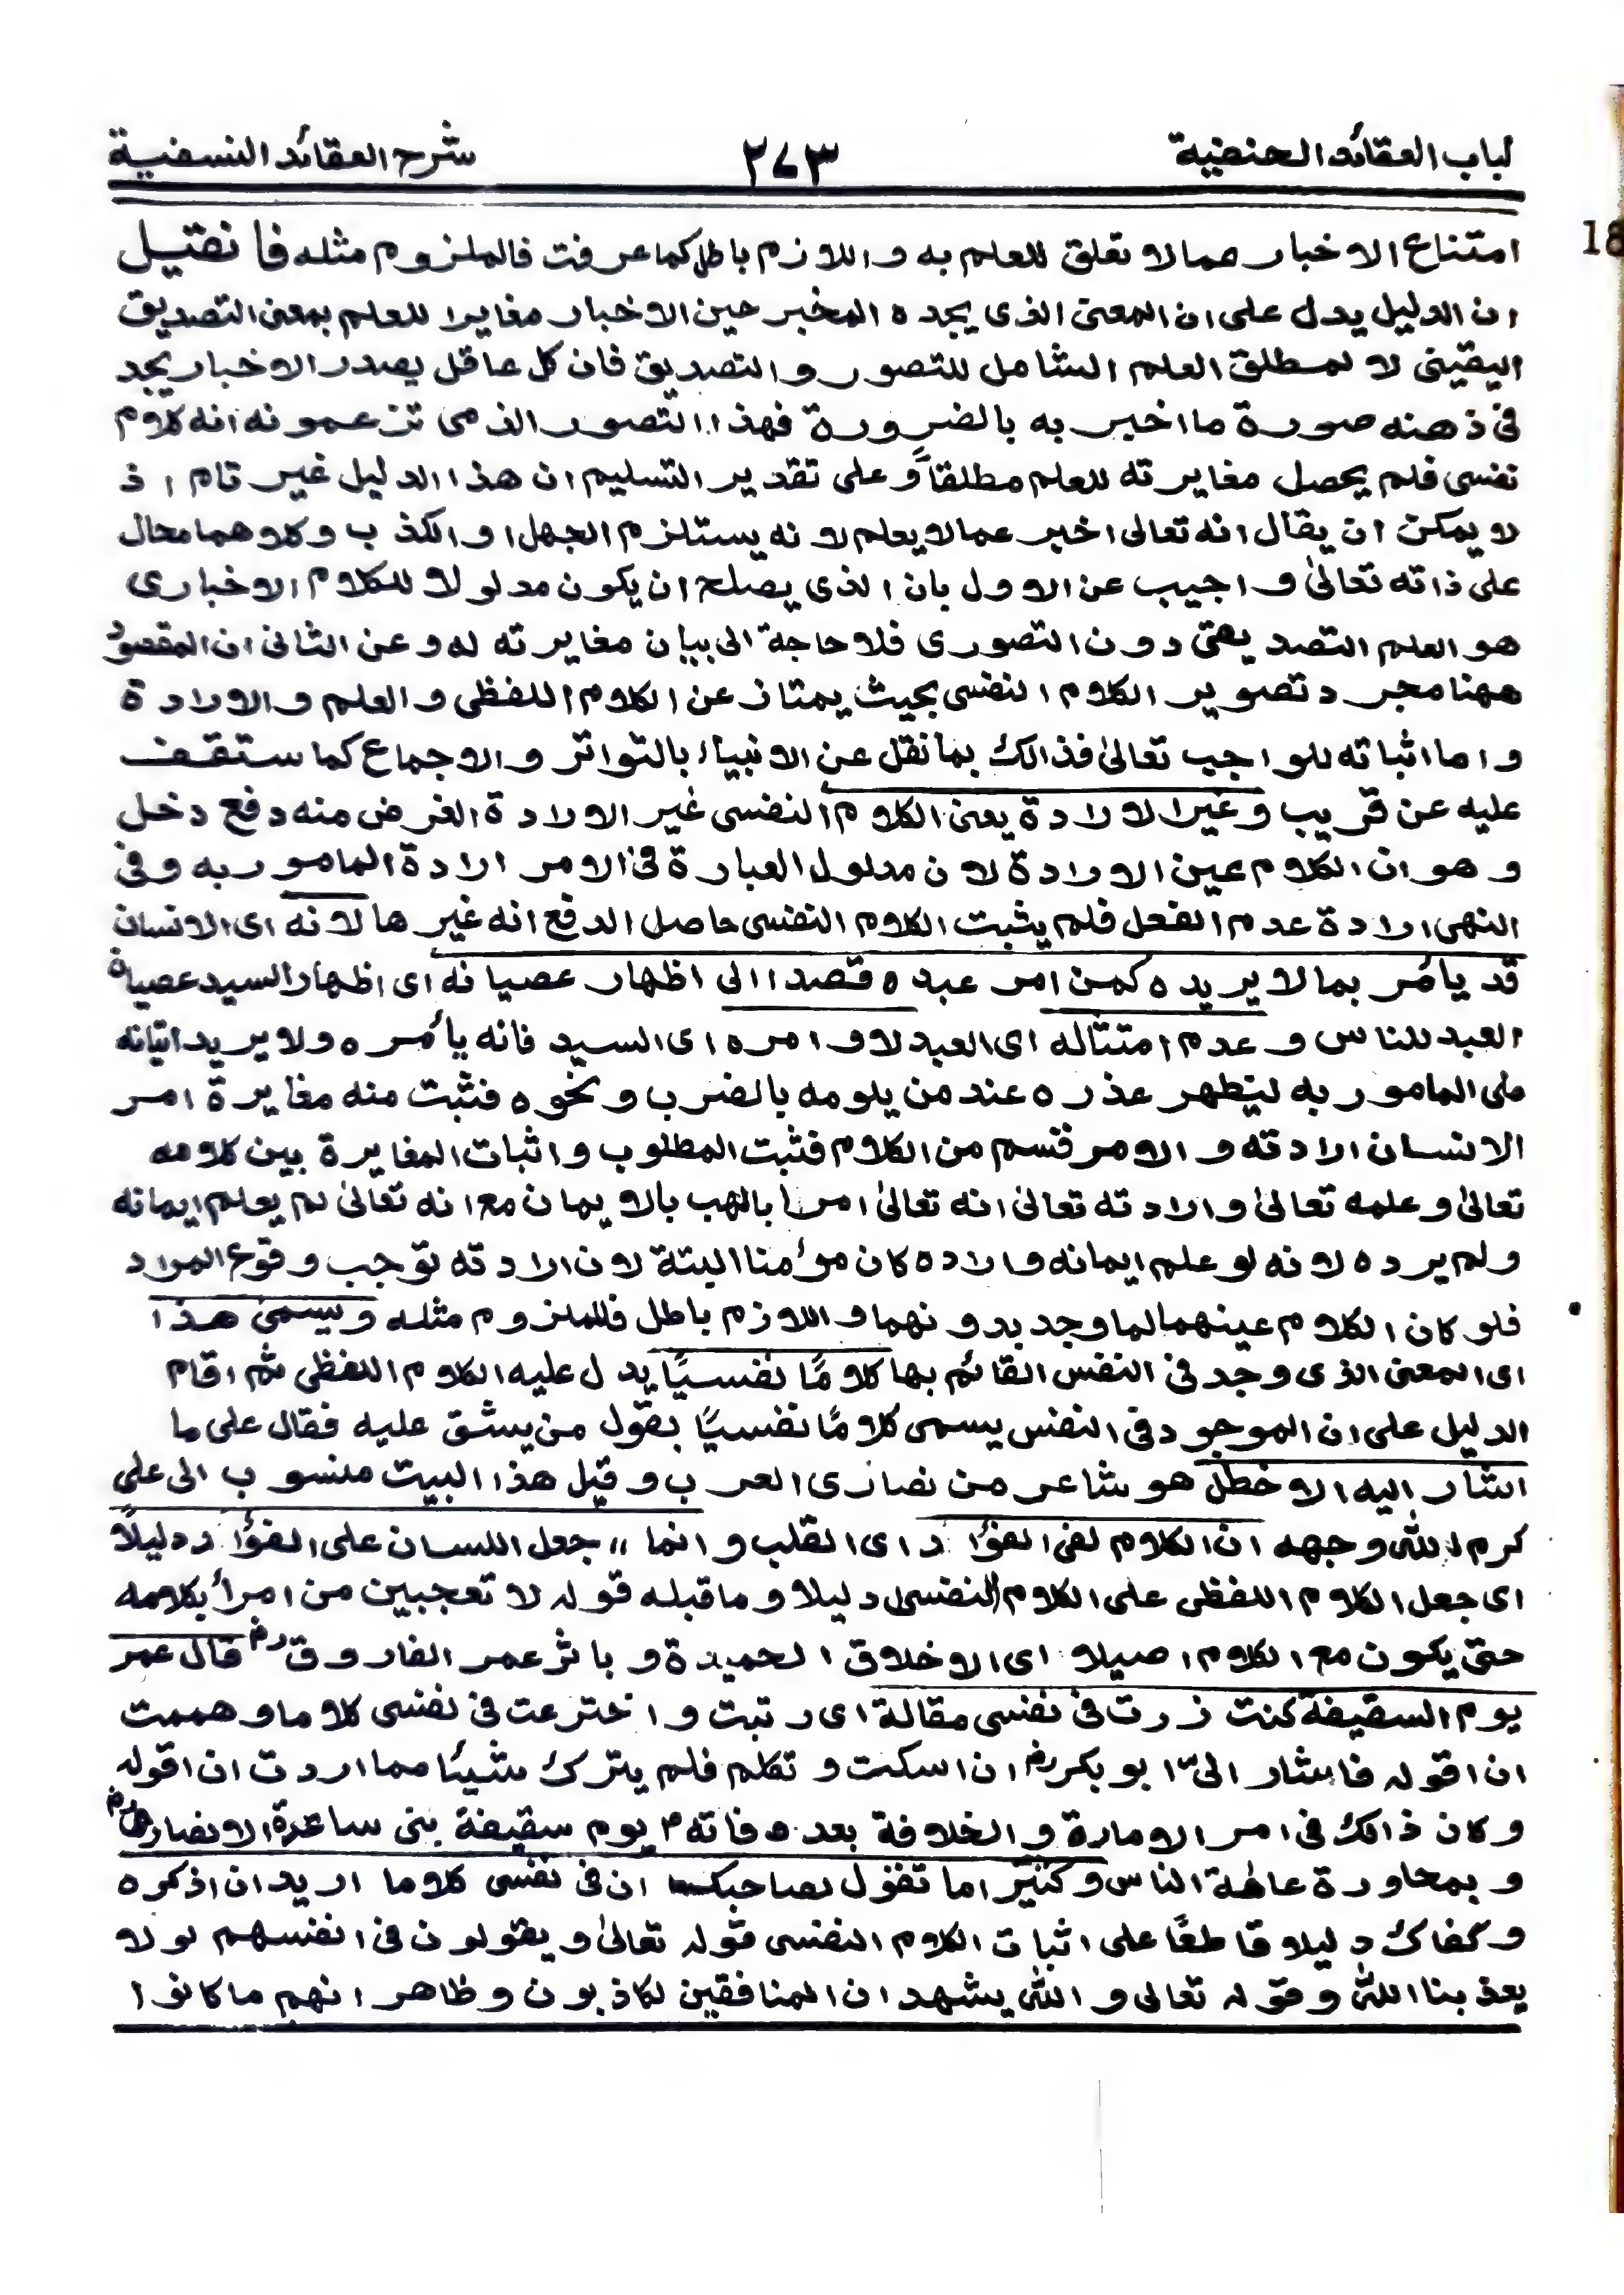 لباب العقائد الحنفية ٢٧٣ شرح العقائد النسفية
امتناع الاخبار عما لا تعلق للعلم به و اللازم باطل كما عرفت فالملزوم مثله فان قيل
ان الدليل يدل على ان المعنى الذى يجده المخبر حين الاخبار مغايرا للعلم بمعنى التصديق
اليقينى لا لمطلق العلم الشامل للتصور و التصديق فان كل عاقل يصدر الاخبار يجد
فى ذهنه صورة ما اخبر به بالضرورة فهذا التصور الذى تزعمونه انه كلام
نفسى فلم يحصل مغايرته للعلم مطلقاً و على تقدير التسليم ان هذا الدليل غير تام اذ
لا يمكن ان يقال انه تعالى اخبر عما لا يعلم لانه يستلزم الجهل او الكذب و كلاهما محال
على ذاته تعالىٰ و اجيب عن الاول بان الذى يصلح ان يكون مدلولا للكلام الاخبارى
هو العلم التصديقى دون التصورى فلا حاجة الى بيان مغايرته له و عن الثانى ان المقصود
ههنا مجرد تصوير الكلام النفسى بحيث يمتاز عن الكلام اللفظى و العلم و الارادة
و اما اثباته للواجب تعالىٰ فذالك بما نقل عن الانبياء بالتواتر و الاجماع كما ستقف
عليه عن قريب و غير الارادة يعنى الكلام النفسى غير الارادة الغرض منه دفع دخل
و هو ان الكلام عين الارادة لان مدلول العبارة فى الامر ارادة المامور به و فى
النهى ارادة عدم الفعل فلم يثبت الكلام النفسى حاصل الدفع انه غيرها لانه اى الانسان
قد يأمر بما لا يريده كمن امر عبده قصدا الى اظهار عصيانه اى اظهار السيد عصيان
العبد للناس و عدم امتثاله اى العبد لاوامره اى السيد فانه يأمره ولا يريد اتيانه
على المامور به ليظهر عذره عند من يلومه بالضرب و نحوه فثبت منه مغايرة امر
الانسان ارادته و الامر قسم من الكلام فثبت المطلوب و اثبات المغايرة بين كلامه
تعالىٰ و علمه تعالىٰ و ارادته تعالىٰ انه تعالىٰ امر ابا لهب بالايمان مع انه تعالىٰ لم يعلم ايمانه
و لم يرده لانه لو علم ايمانه و اراده كان مؤمنا البتة لان ارادته توجب وقوع المراد
فلو كان الكلام عينهما لما وجد بدونهما و اللازم باطل فالملزوم مثله و يسمىٰ هذا
اى المعنى الذى وجد فى النفس القائم بها كلامًا نفسيًا يدل عليه الكلام اللفظى ثم اقام
الدليل على ان الموجود فى النفس يسمى كلامًا نفسيًا بقول من يشق عليه فقال على ما
اشار اليه الاخطل هو شاعر من نصارى العرب و قيل هذا البيت منسوب الى على
كرم الله وجهه ان الكلام لفى الفؤاد اى القلب و انما ،، جعل اللسان على الفؤاد دليلاً
اى جعل الكلام اللفظى على الكلام النفسى دليلا و ما قبله قوله لا تعجبين من امرأ بكلامه
حتى يكون مع الكلام اصيلا اى الاخلاق الحميدة و باثر عمر الفاروق رض قال عمر
يوم السقيفة كنت زرت فى نفسى مقالة اى رتبت و اخترعت فى نفسى كلاما و هممت
ان اقوله فاشار الىّ ابو بكر رض ان اسكت و تكلم فلم يترك شيئًا مما اردت ان اقوله
و كان ذالك فى امر الامارة و الخلافة بعد وفاته م يوم سقيفة بنى ساعدة الانصار رض
و بمحاورة عامة الناس و كثيرا ما تقول لصاحبك ان فى نفسى كلاما اريد ان اذكره
و كفاك دليلا قاطعًا على اثبات الكلام النفسى قوله تعالىٰ و يقولون فى انفسهم لولا
يعذبنا الله و قوله تعالى و الله يشهد ان المنافقين لكاذبون و ظاهر انهم ما كانوا